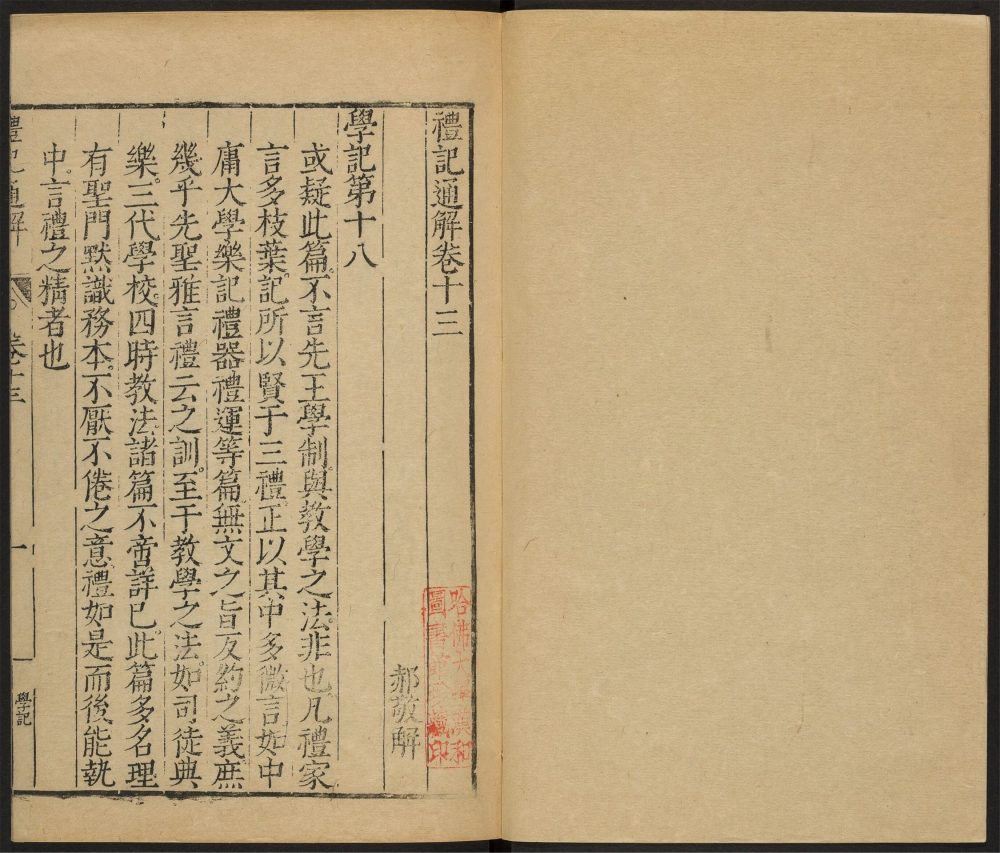 禮記通解卷十三
郝敬解
哈佛大學漢和
圖書館珍藏印
學記第十八
或疑此篇。不言先王學制。與教學之法。非也。凡禮家
言多枝葉。記所以賢于三禮。正以其中多微言。如中
庸大學樂記禮器禮運等篇。無文之旨。反約之義。庶
幾乎先聖雅言禮云之訓。至于教學之法。如司徒典
樂。三代學校。四時教法。諸篇不啻詳已。此篇多名理
有聖門默識務本。不厭不倦之意。禮如是而後能執
中。言禮之精者也
禮記通解
卷十三
一
學記